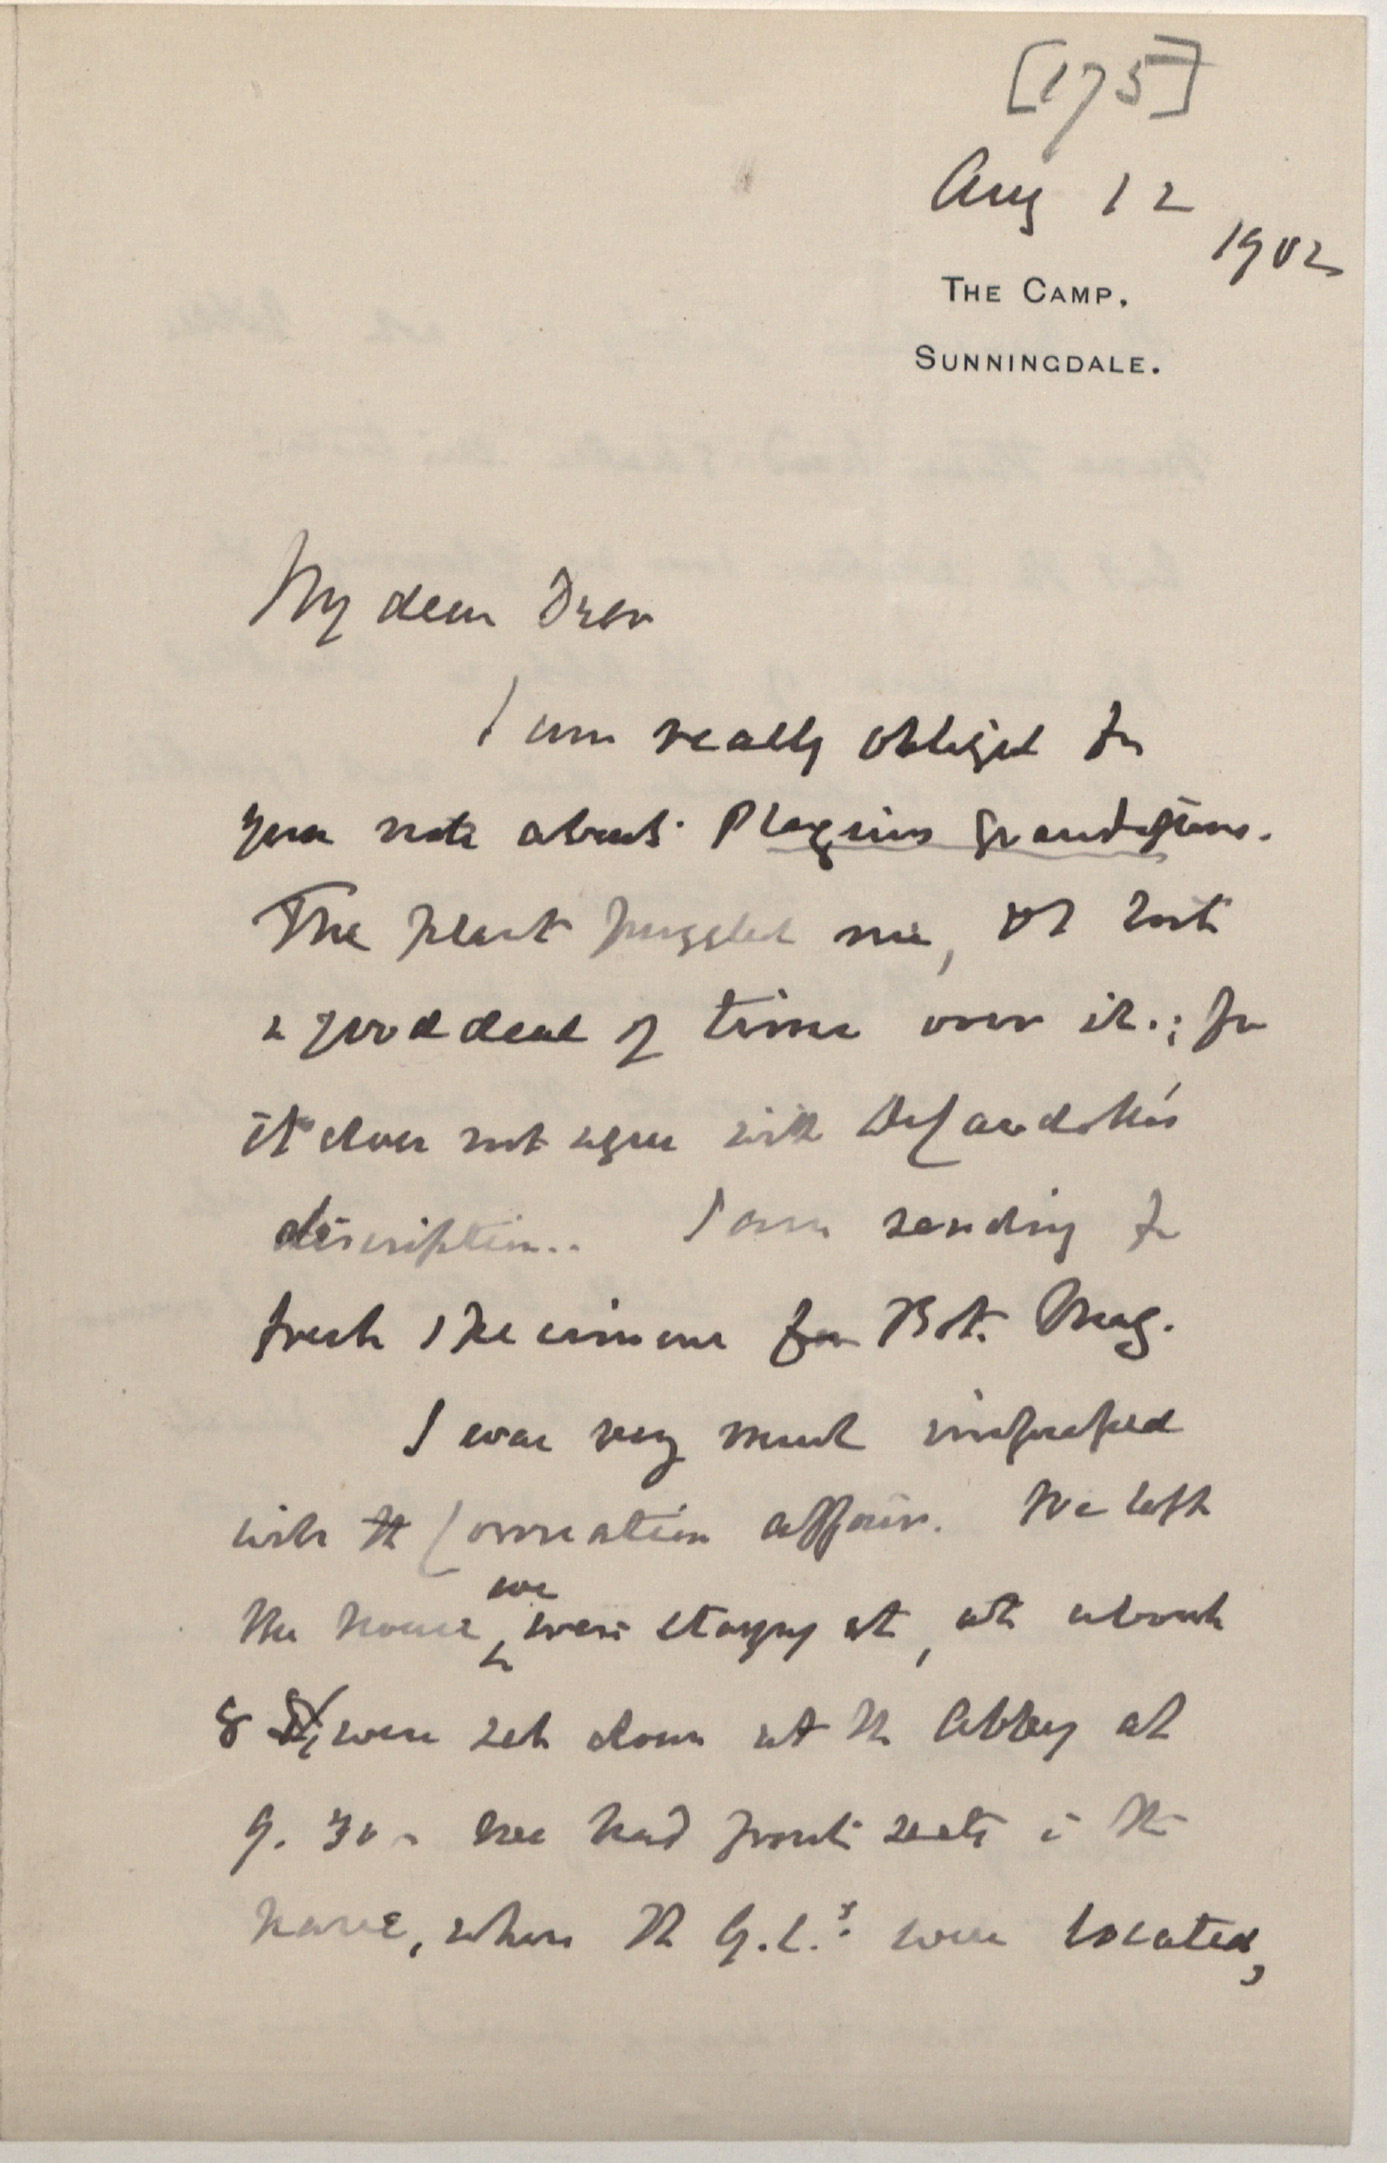 [175]
Aug 12
1902
THE CAMP,
SUNNINGDALE.
My dear Dyer
I am really obliged for
your note about Plagius grandiflorus.
The plant puzzled me, & I lost
a good deal of time over it.; for
it does not agree with DeCandolle's
description.. I am sending for
fresh specimens for Bot. Mag.
I was very much
with the Coronation affair. We left
the house we were staying at, at about
8 were set down at the Abbey at
9.30 - We had front seats in the
Nave, where the G.C.s: were located,